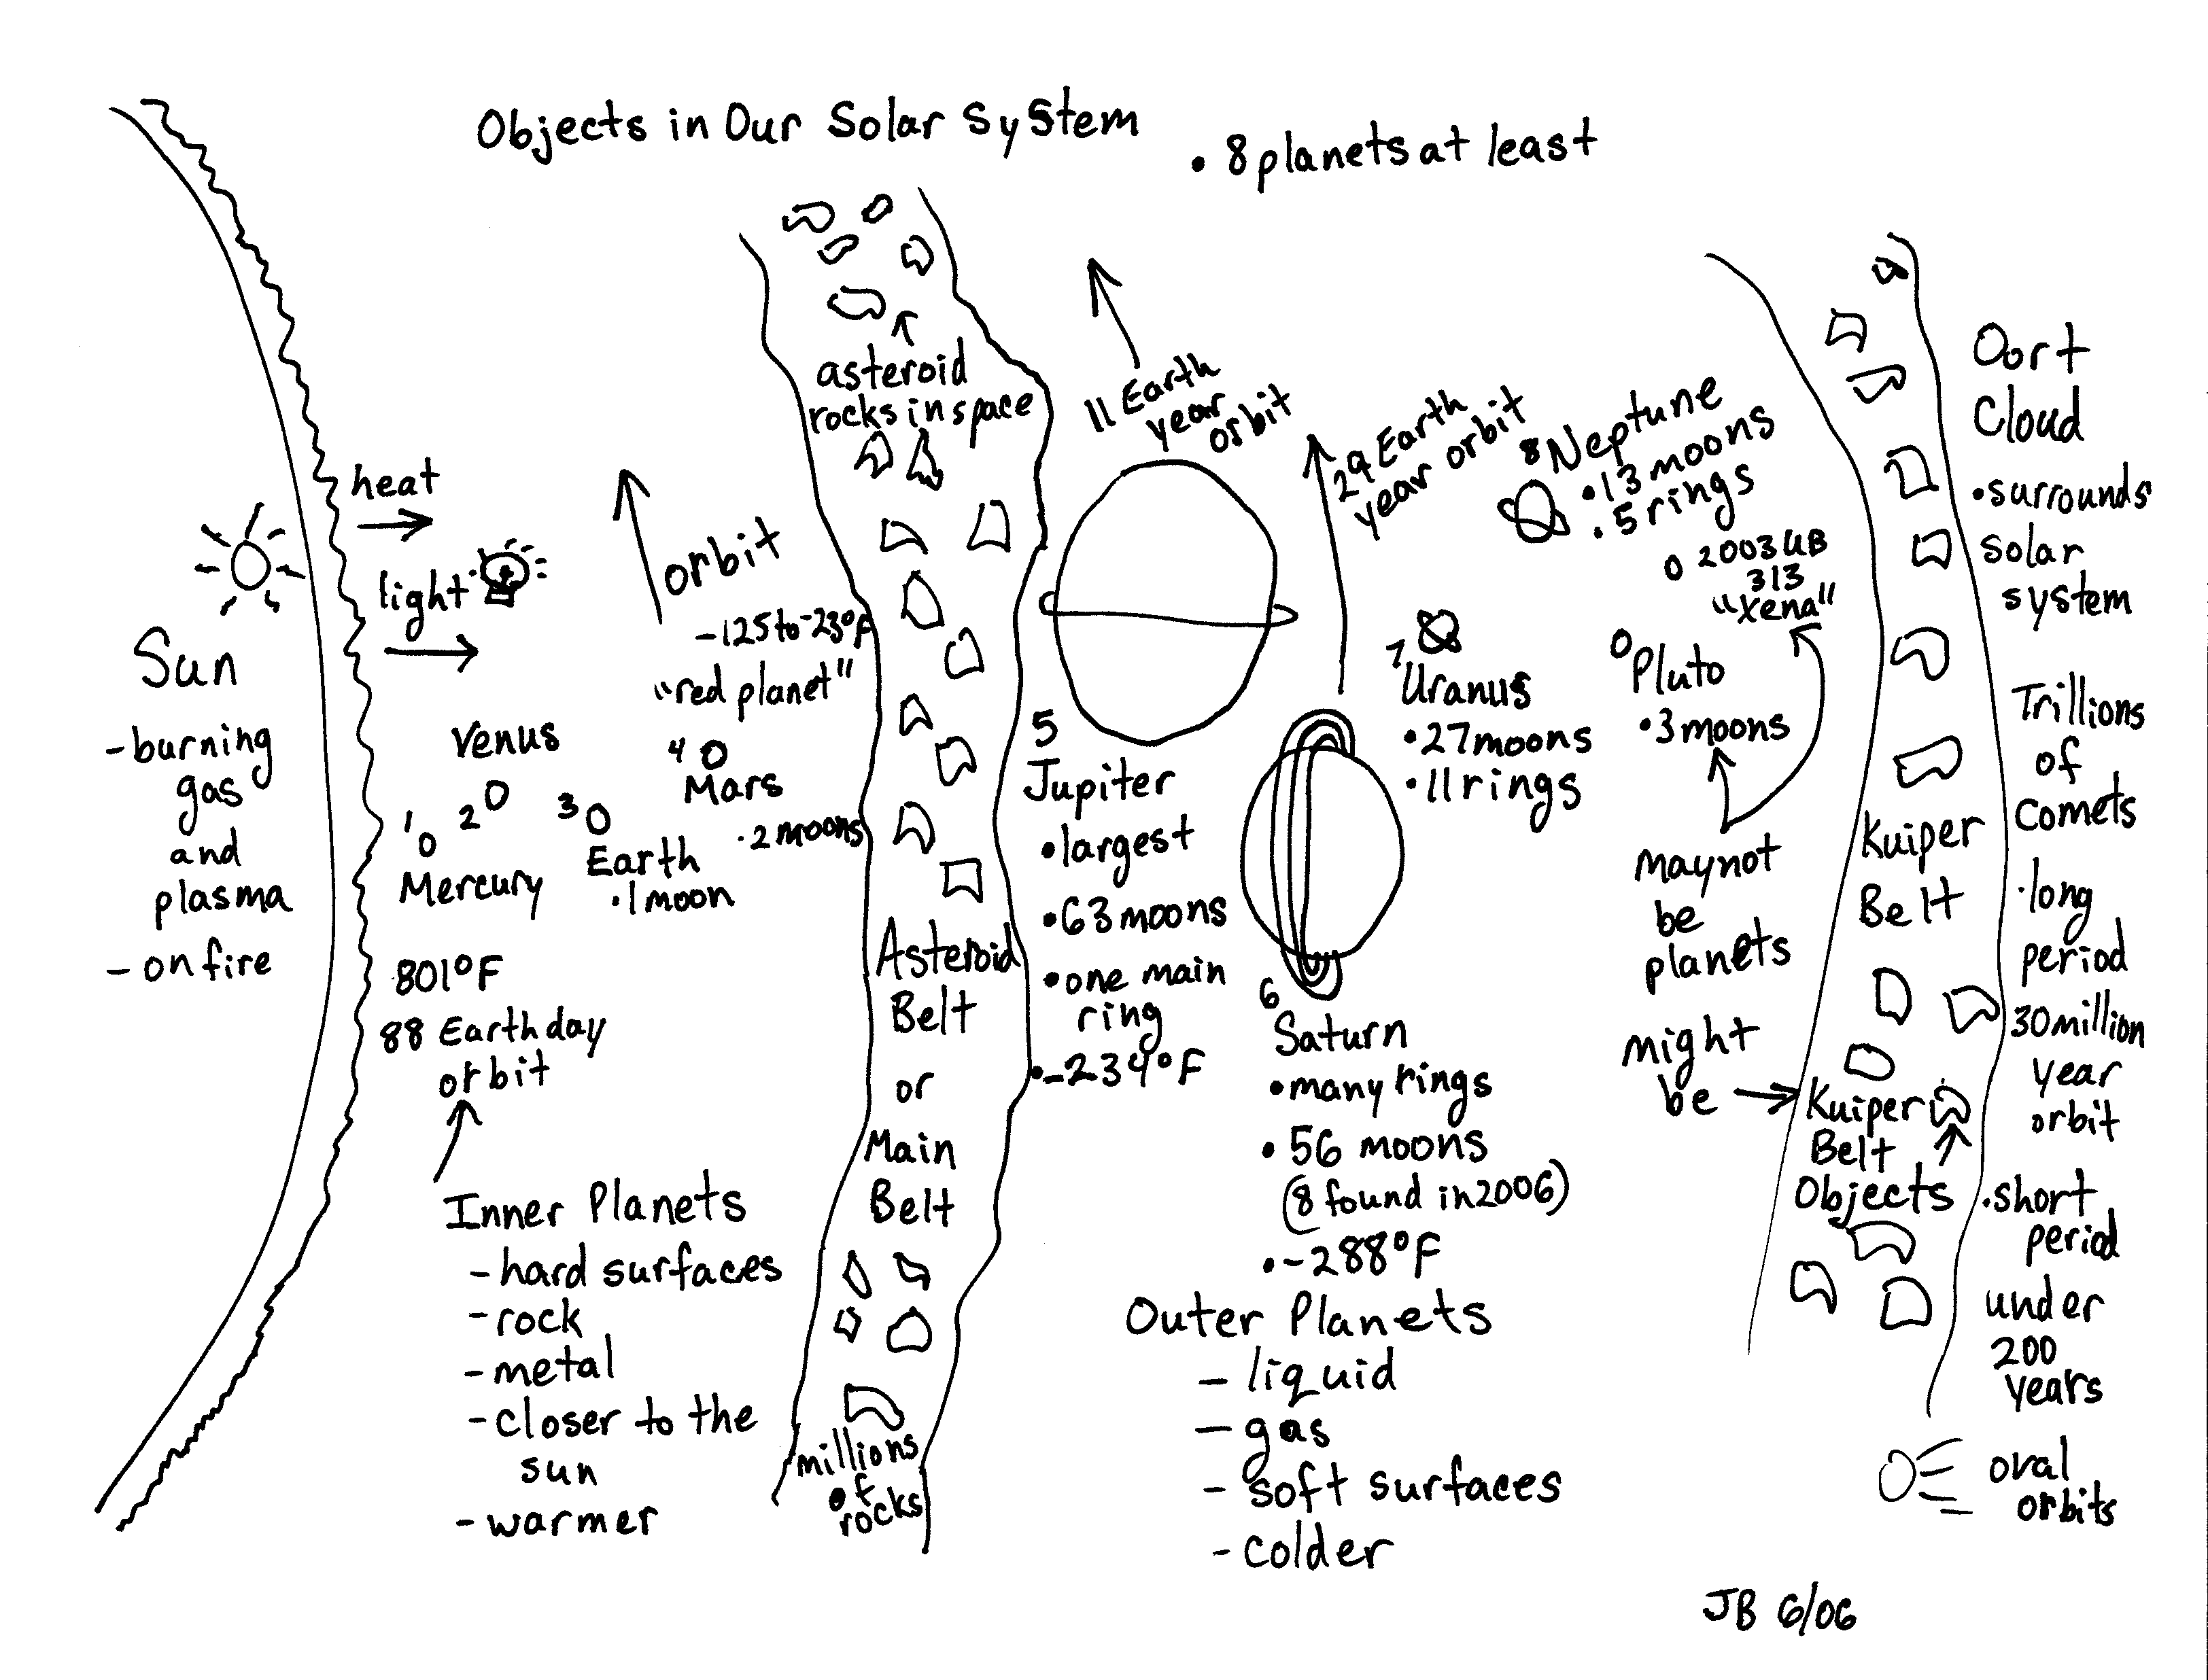 Objects in Our Solar System
• 8 planets at least
heat
light
Sun
-burning
gas
and
plasma
-on fire
orbit
-125 to -23°F
"red planet"
Venus
1
2
3
4
Mars
• 2 moons
Mercury
Earth
• 1 moon
801°F
88 Earth day
orbit
Inner Planets
- hard surfaces
- rock
- metal
- closer to the
sun
- warmer
asteroid
rocks in space
Asteroid
Belt
or
Main
Belt
millions
of
rocks
11 Earth
year
orbit
5
Jupiter
• largest
• 63 moons
• one main
ring
• -234°F
29 Earth
year orbit
6
Saturn
• many rings
• 56 moons
(8 found in 2006)
• -288°F
Outer Planets
- liquid
- gas
- soft surfaces
- colder
7
Uranus
• 27 moons
• 11 rings
8 Neptune
• 13 moons
• 5 rings
2003 UB
313
"Xena"
Pluto
• 3 moons
may not
be
planets
might
be
Kuiper
Belt
Kuiper
Belt
Objects
Oort
Cloud
• surrounds
solar
system
Trillions
of
Comets
• long
period
30 million
year
orbit
• short
period
under
200
years
oval
orbits
JB 6/06